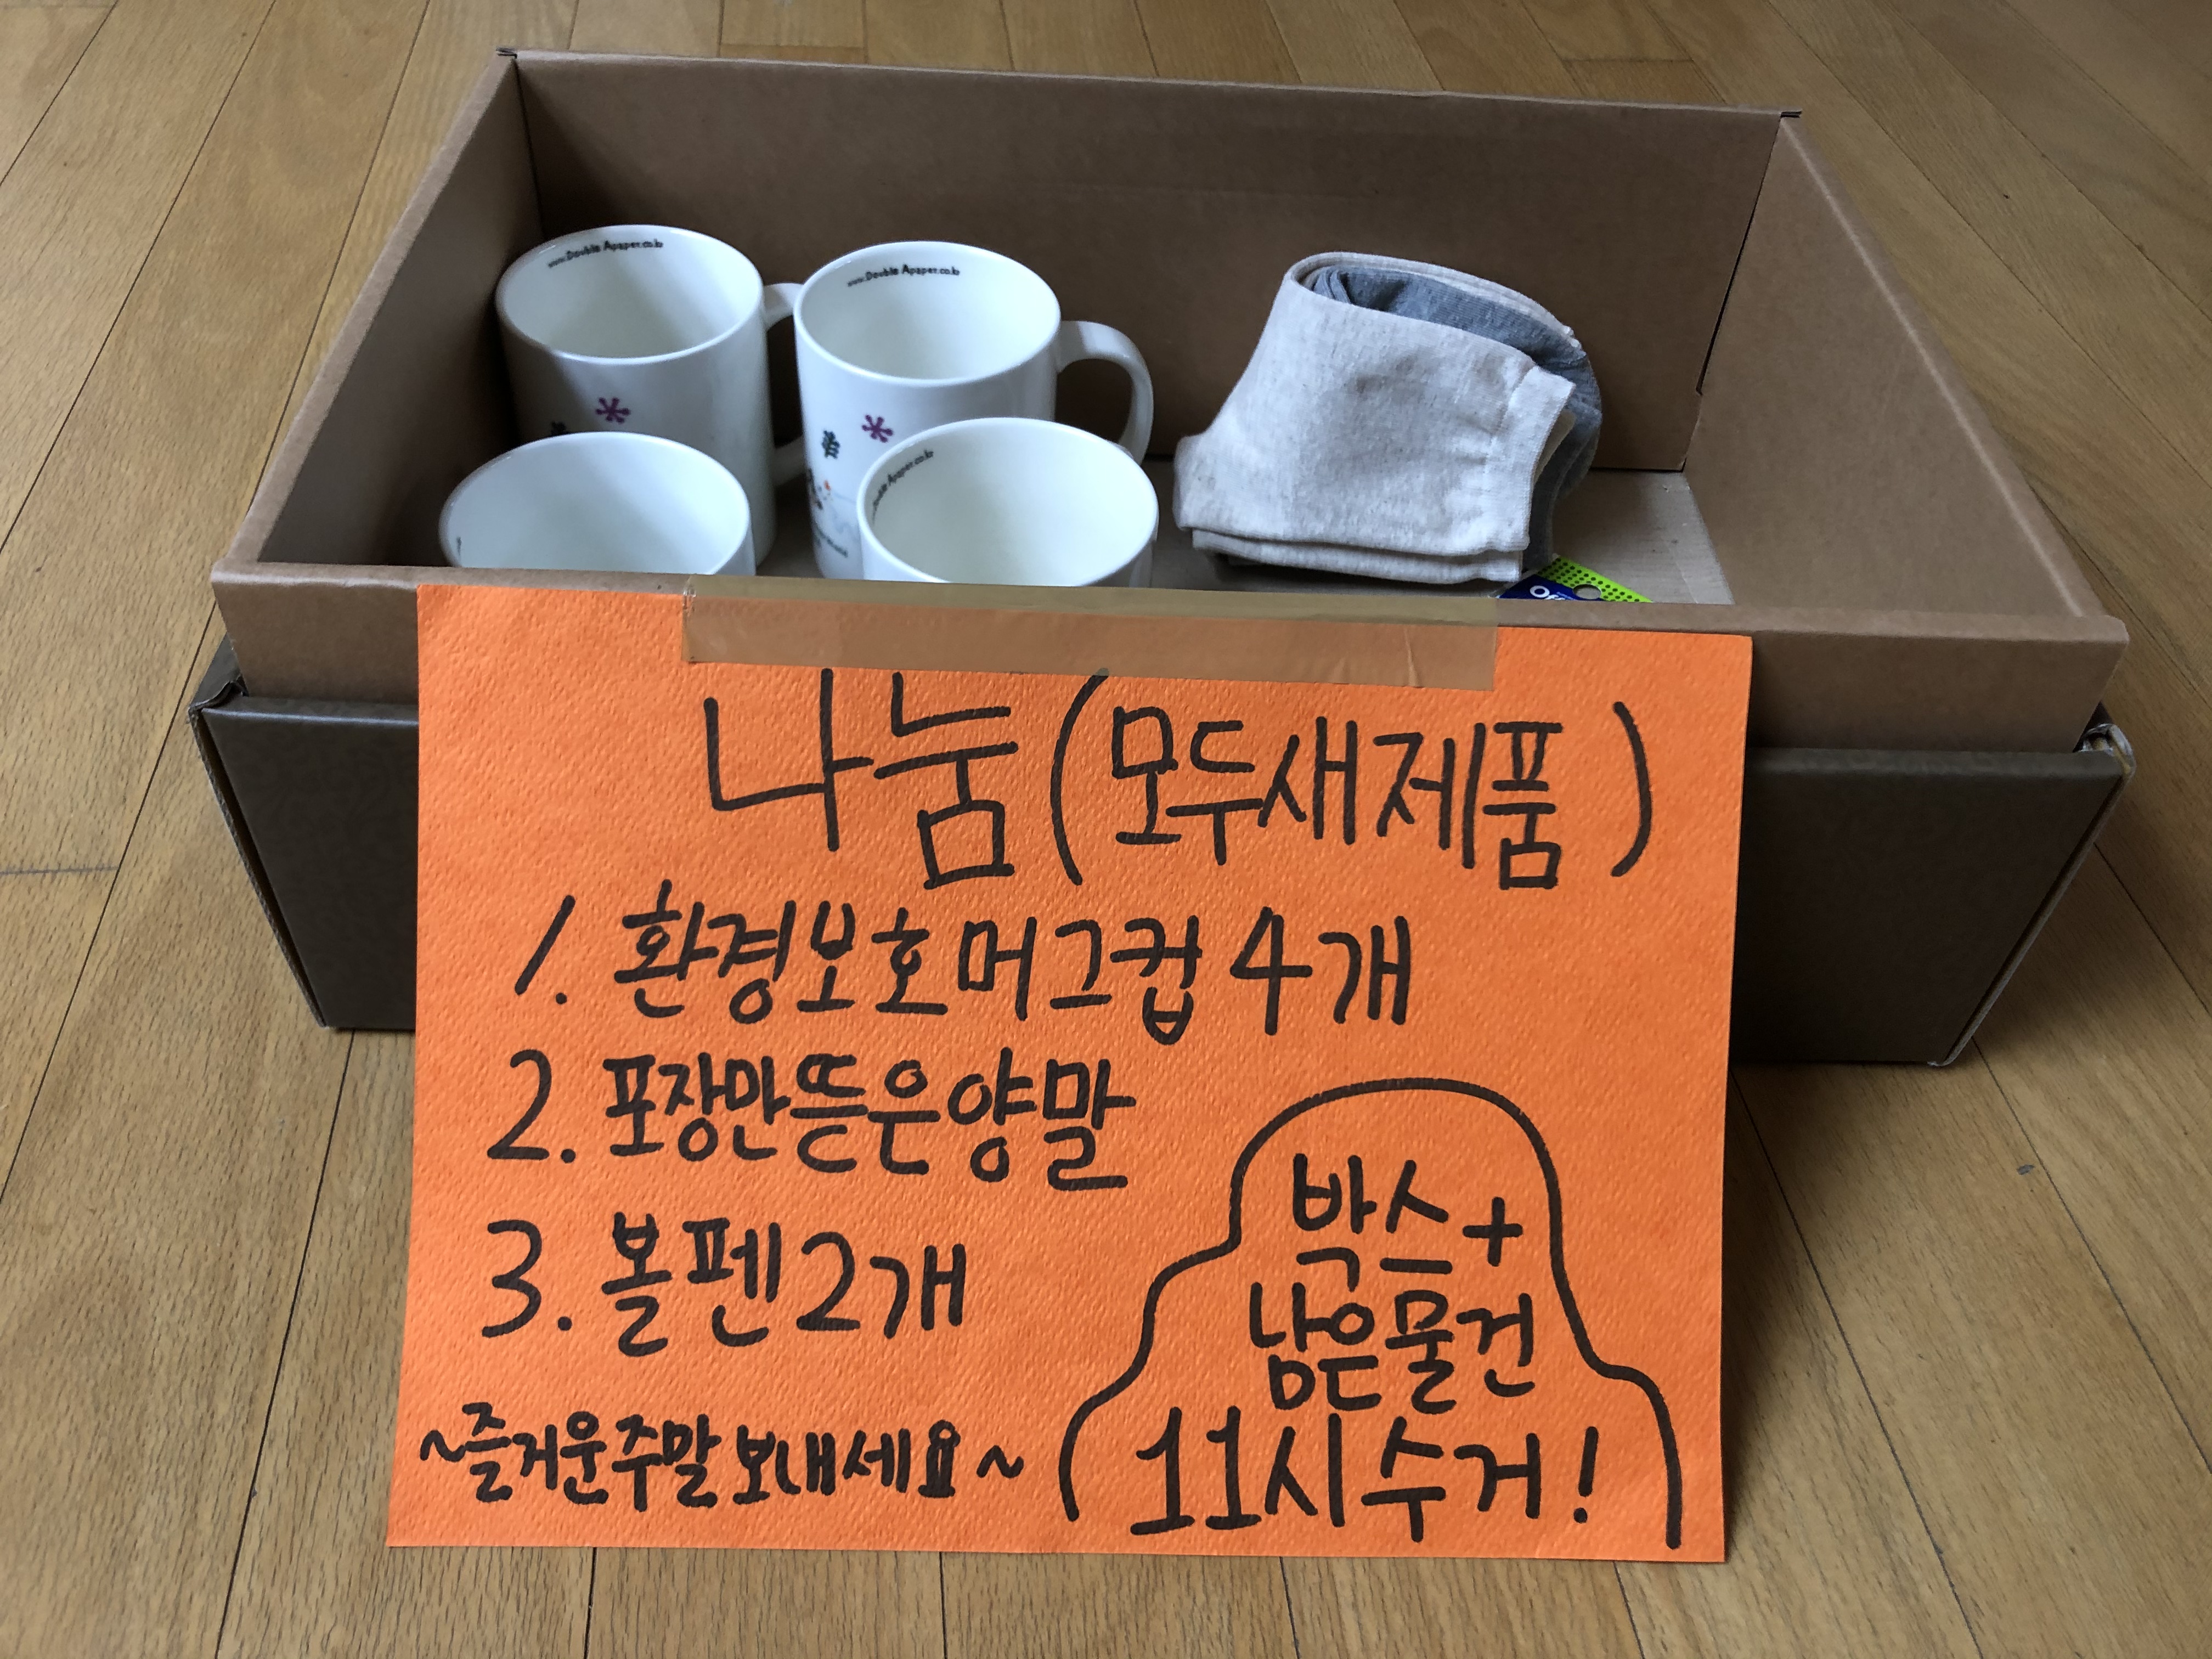 www.Double Apaper.co.kr
www.Double Apaper.co.kr
Apaper.co.kr
나눔(모두새제품)
1. 환경보호머그컵 4개
2. 포장만뜯은양말
3. 볼펜2개
~즐거운주말보내세요~
박스+
남은물건
11시수거!